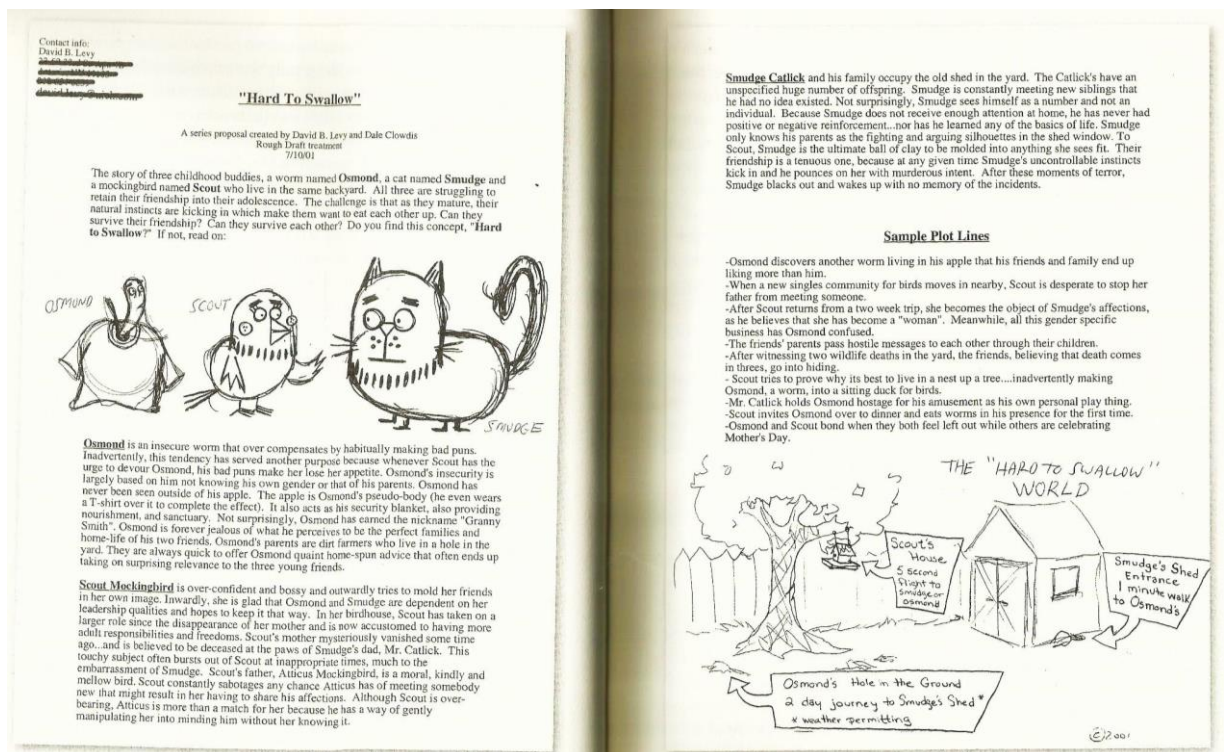 Contact info:
David B. Levy
"Hard To Swallow"
A series proposal created by David B. Levy and Dale Clowdis
Rough Draft treatment
7/10/01
The story of three childhood buddies, a worm named Osmond, a cat named Smudge and
a mockingbird named Scout who live in the same backyard. All three are struggling to
retain their friendship into their adolescence. The challenge is that as they mature, their
natural instincts are kicking in which make them want to eat each other up. Can they
survive their friendship? Can they survive each other? Do you find this concept, "Hard
to Swallow?" If not, read on:
OSMOND
SCOUT
SMUDGE
Osmond is an insecure worm that over compensates by habitually making bad puns.
Inadvertently, this tendency has served another purpose because whenever Scout has the
urge to devour Osmond, his bad puns make her lose her appetite. Osmond's insecurity is
largely based on him not knowing his own gender or that of his parents. Osmond has
never been seen outside of his apple. The apple is Osmond's pseudo-body (he even wears
a T-shirt over it to complete the effect). It also acts as his security blanket, also providing
nourishment, and sanctuary. Not surprisingly, Osmond has earned the nickname "Granny
Smith". Osmond is forever jealous of what he perceives to be the perfect families and
home-life of his two friends. Osmond's parents are dirt farmers who live in a hole in the
yard. They are always quick to offer Osmond quaint home-spun advice that often ends up
taking on surprising relevance to the three young friends.
Scout Mockingbird is over-confident and bossy and outwardly tries to mold her friends
in her own image. Inwardly, she is glad that Osmond and Smudge are dependent on her
leadership qualities and hopes to keep it that way. In her birdhouse, Scout has taken on a
larger role since the disappearance of her mother and is now accustomed to having more
adult responsibilities and freedoms. Scout's mother mysteriously vanished some time
ago...and is believed to be deceased at the paws of Smudge's dad, Mr. Catlick. This
touchy subject often bursts out of Scout at inappropriate times, much to the
embarrassment of Smudge. Scout's father, Atticus Mockingbird, is a moral, kindly and
mellow bird. Scout constantly sabotages any chance Atticus has of meeting somebody
new that might result in her having to share his affections. Although Scout is over-
bearing, Atticus is more than a match for her because he has a way of gently
manipulating her into minding him without her knowing it.
Smudge Catlick and his family occupy the old shed in the yard. The Catlick's have an
unspecified huge number of offspring. Smudge is constantly meeting new siblings that
he had no idea existed. Not surprisingly, Smudge sees himself as a number and not an
individual. Because Smudge does not receive enough attention at home, he has never had
positive or negative reinforcement...nor has he learned any of the basics of life. Smudge
only knows his parents as the fighting and arguing silhouettes in the shed window. To
Scout, Smudge is the ultimate ball of clay to be molded into anything she sees fit. Their
friendship is a tenuous one, because at any given time Smudge's uncontrollable instincts
kick in and he pounces on her with murderous intent. After these moments of terror,
Smudge blacks out and wakes up with no memory of the incidents.
Sample Plot Lines
-Osmond discovers another worm living in his apple that his friends and family end up
liking more than him.
-When a new singles community for birds moves in nearby, Scout is desperate to stop her
father from meeting someone.
-After Scout returns from a two week trip, she becomes the object of Smudge's affections,
as he believes that she has become a "woman". Meanwhile, all this gender specific
business has Osmond confused.
-The friends' parents pass hostile messages to each other through their children.
-After witnessing two wildlife deaths in the yard, the friends, believing that death comes
in threes, go into hiding.
- Scout tries to prove why its best to live in a nest up a tree....inadvertently making
Osmond, a worm, into a sitting duck for birds.
-Mr. Catlick holds Osmond hostage for his amusement as his own personal play thing.
-Scout invites Osmond over to dinner and eats worms in his presence for the first time.
-Osmond and Scout bond when they both feel left out while others are celebrating
Mother's Day.
THE "HARD TO SWALLOW"
WORLD
Scout's
House
5 second
flight to
Smudge or
Osmond
Smudge's Shed
Entrance
1 minute walk
to Osmond's
Osmond's Hole in the Ground
2 day journey to Smudge's Shed *
* weather permitting
© 2001